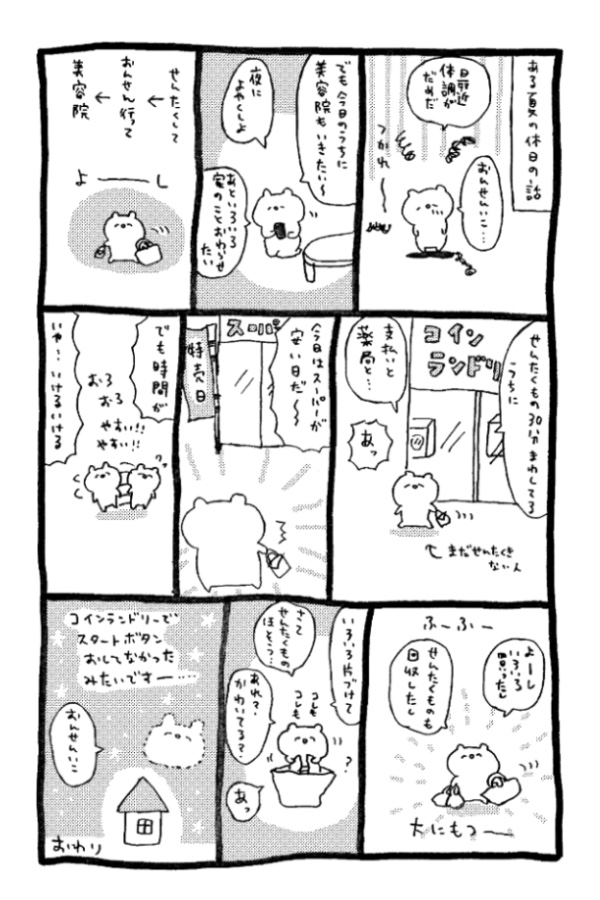 ある夏の休日の話
最近
体調が
だめだ
つかれ〜
おんせんいこ…
でも今日のうちに
美容院もいきたい〜
夜に
よやくしよ
あといろいろ
家のことおわらせ
たい
せんたくして
↓
おんせん行って
↓
美容院
よーーし
せんたくもの30分まわしてる
うちに
コイン
ランドリ
支払いと
薬局と…
あっ
まだせんたくき
ない人
今日はスーパーが
安い日だ〜〜
スーパ
特売日
でも時間が
おろ
おろ
やすい!!
やすい!!
いや…いけるいける
ふーふー
よーし
いろいろ
買ったし
せんたくものも
回収したし
大にもつ――
いろいろ片づけて
さて
せんたくもの
ほそう…
コレも
コレも
あれ?
かわいてる?
?
あっ
コインランドリーで
スタートボタン
おしてなかった
みたいですー……
おんせんいこ
おわり